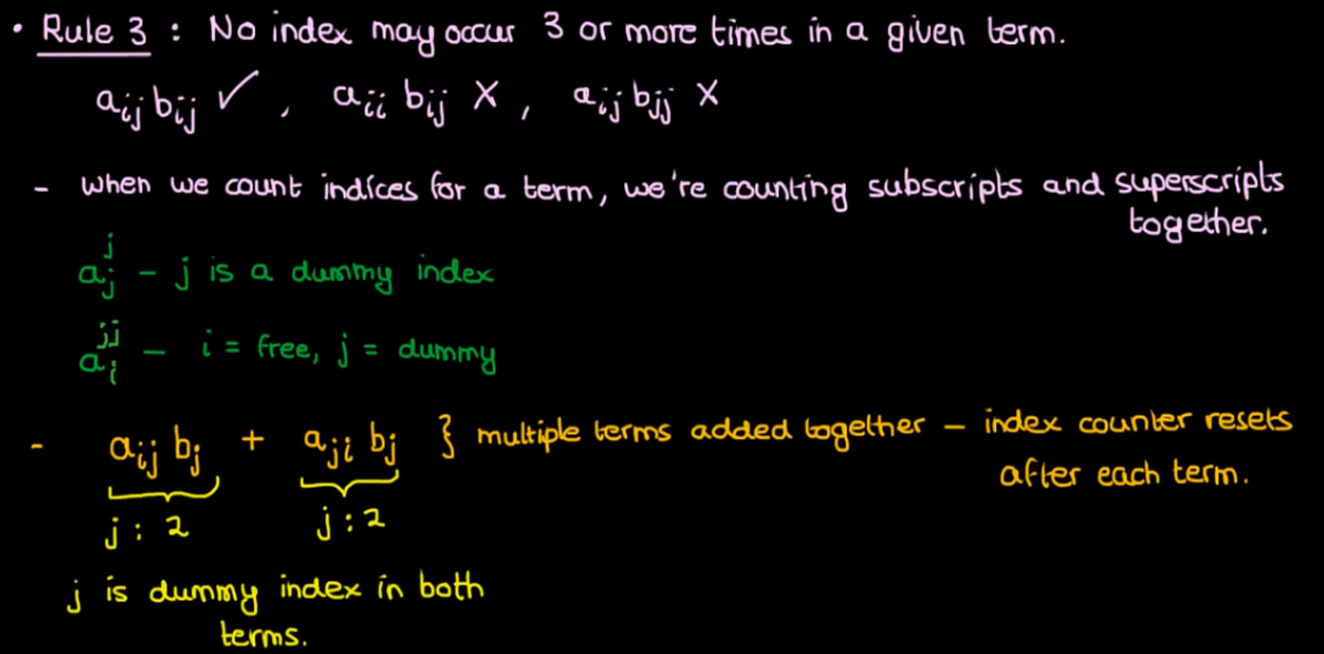 • Rule 3 : No index may occur 3 or more times in a given term.
aᵢⱼ bᵢⱼ ✓ , aᵢᵢ bᵢⱼ X , aᵢⱼ bⱼⱼ X
- when we count indices for a term, we're counting subscripts and superscripts
together.
aⱼʲ - j is a dummy index
aᵢʲʲ - i = free, j = dummy
- aᵢⱼ bⱼ + aⱼᵢ bⱼ } multiple terms added together - index counter resets
after each term.
j : 2 j : 2
j is dummy index in both
terms.